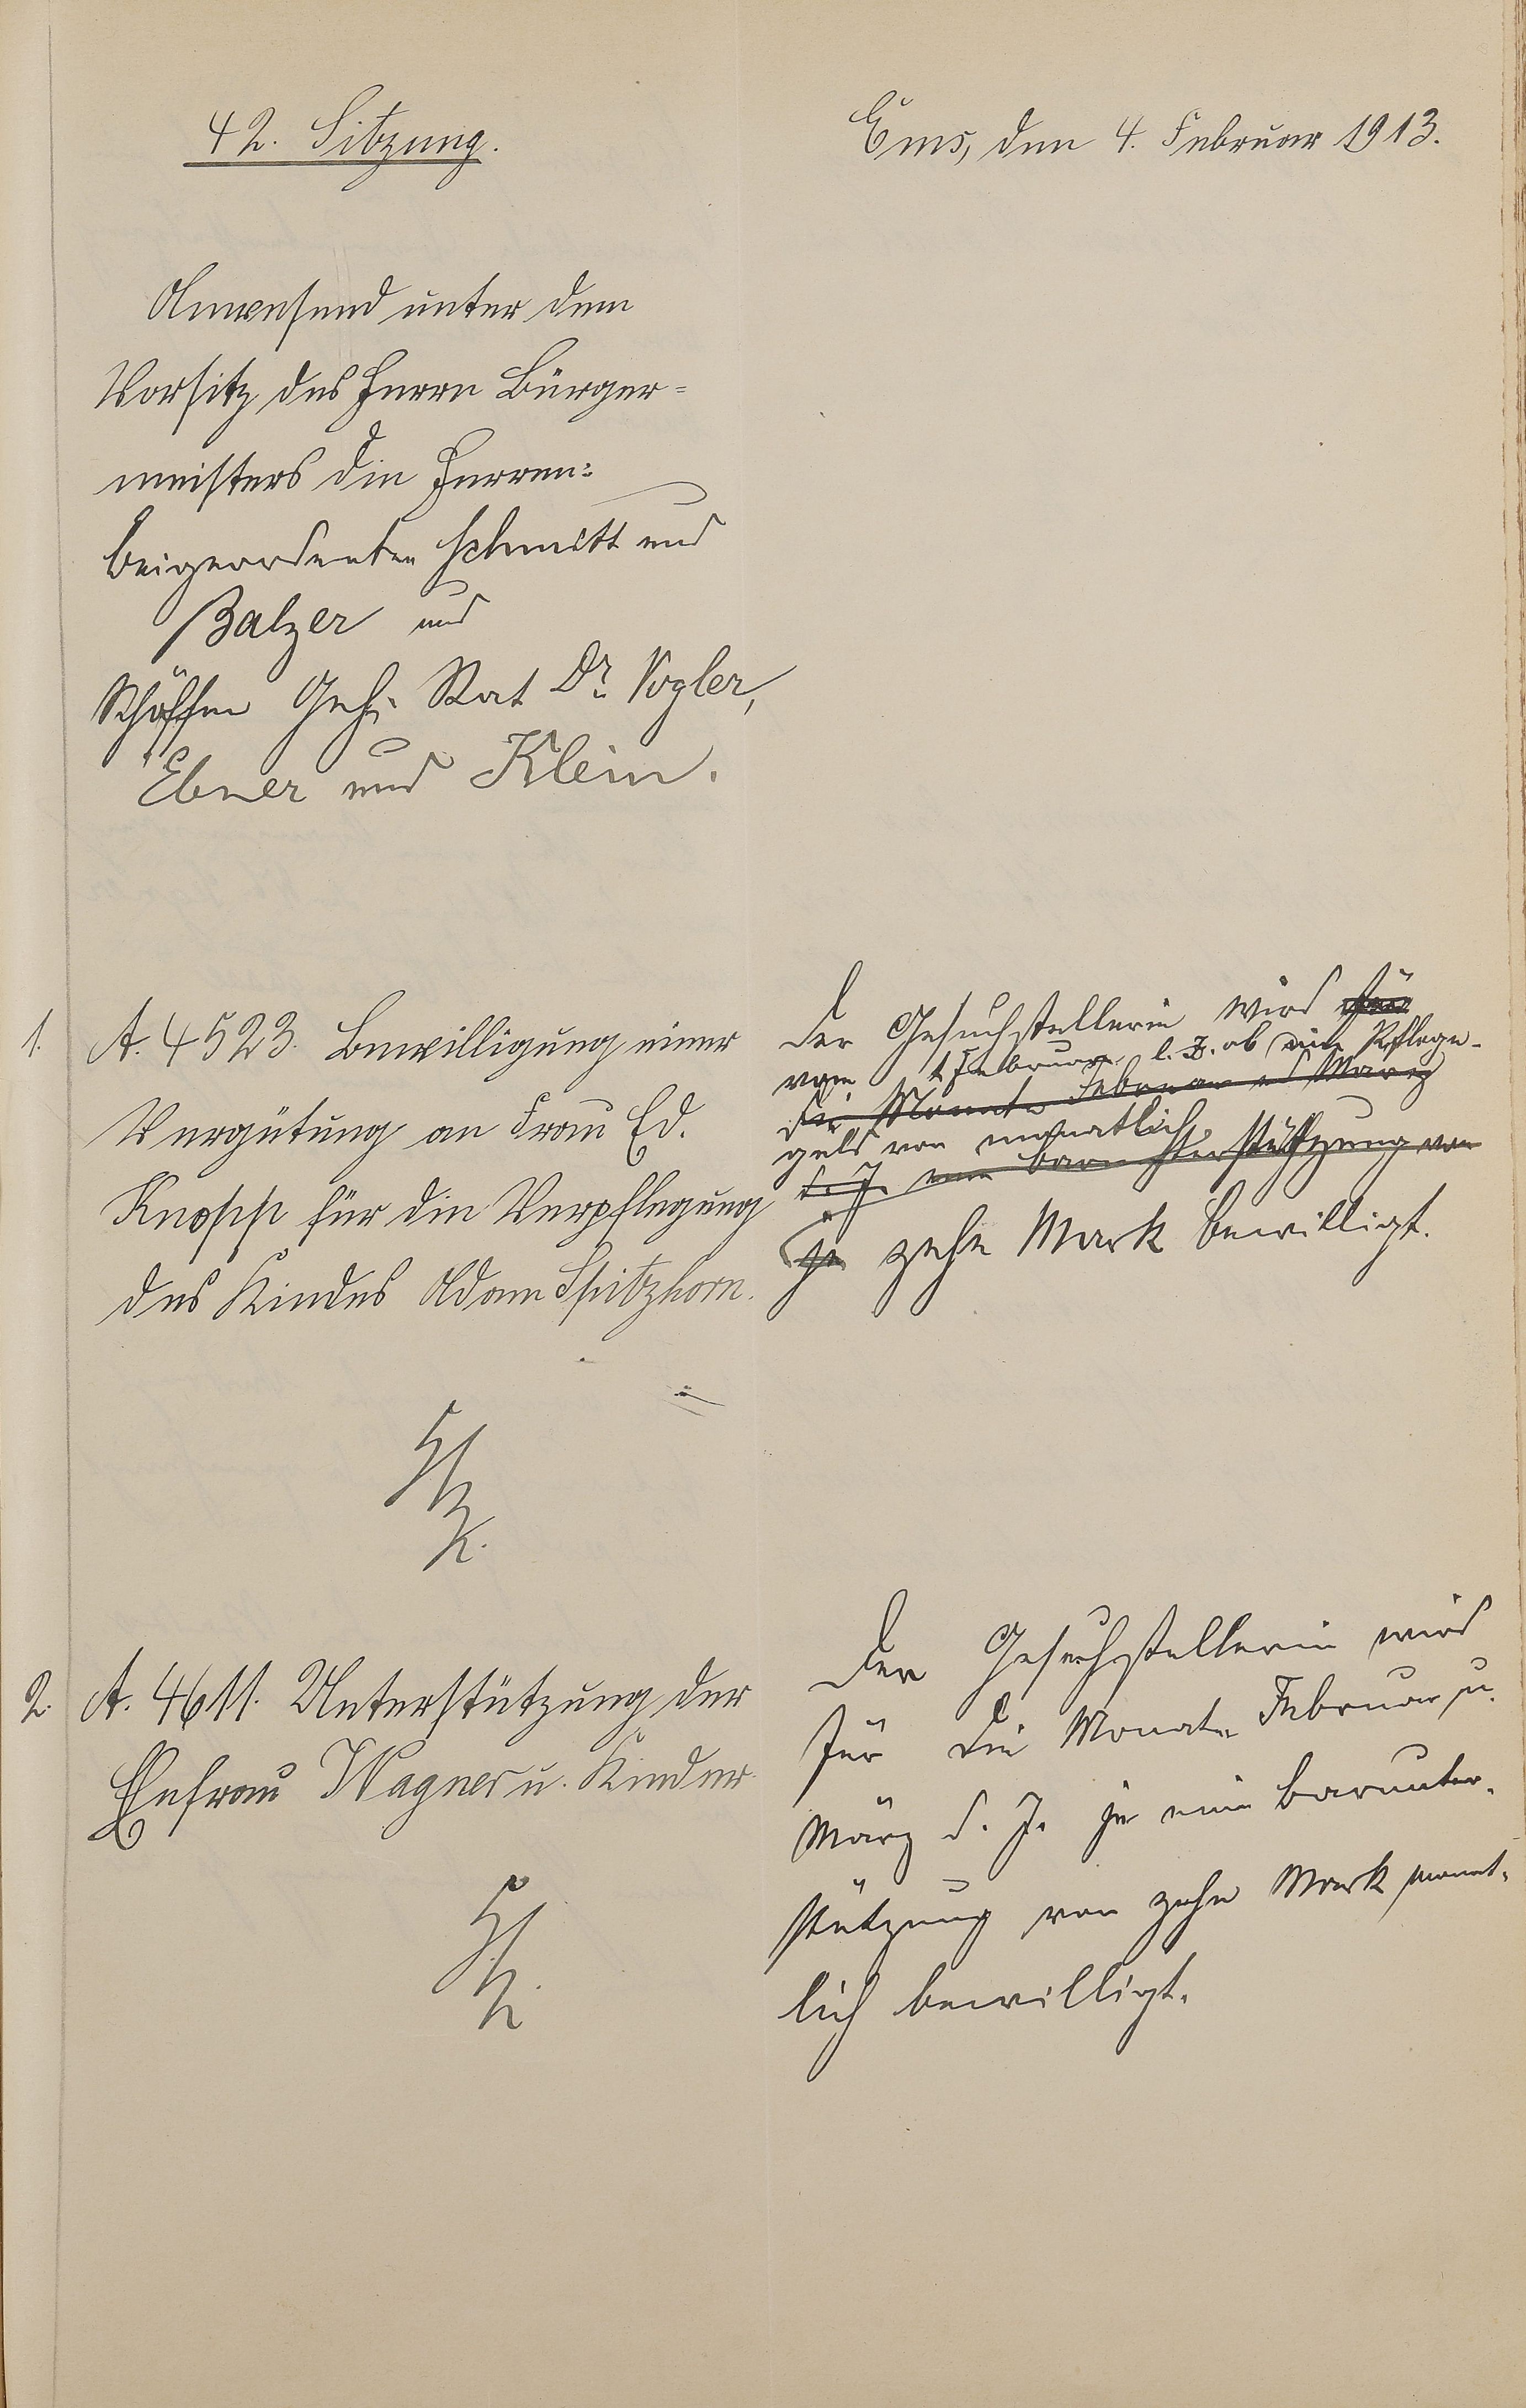 42. Sitzung.
Ems, den 4. Februar 1913.
Anwesend unter dem
Vorsitz des Herrn Bürger=
meisters die Herren:
Beigeordneten Schmitt und
Balzer und
Schöffen Geh. Rat Dr. Vogler,
Ebner und Klein.
1. A. 4523. Bewilligung einer
Vergütung an Frau Ed.
Knopp für die Verpflegung
des Kindes Adam Spitzhorn.
Der Gesuchstellerin wird für
vom 1 Februar l. J. ab ein Pflege-
die Monate Februar und März
geld von monatlich
d. J. eine Barunterstützung von
je zehn Mark bewilligt.
2. A. 4611. Unterstützung der
Ehefrau Wagner u. Kinder.
Der Gesuchstellerin wird
für die Monate Februar u.
März d. J. je eine Barunter-
stützung von zehn Mark monat-
lich bewilligt.